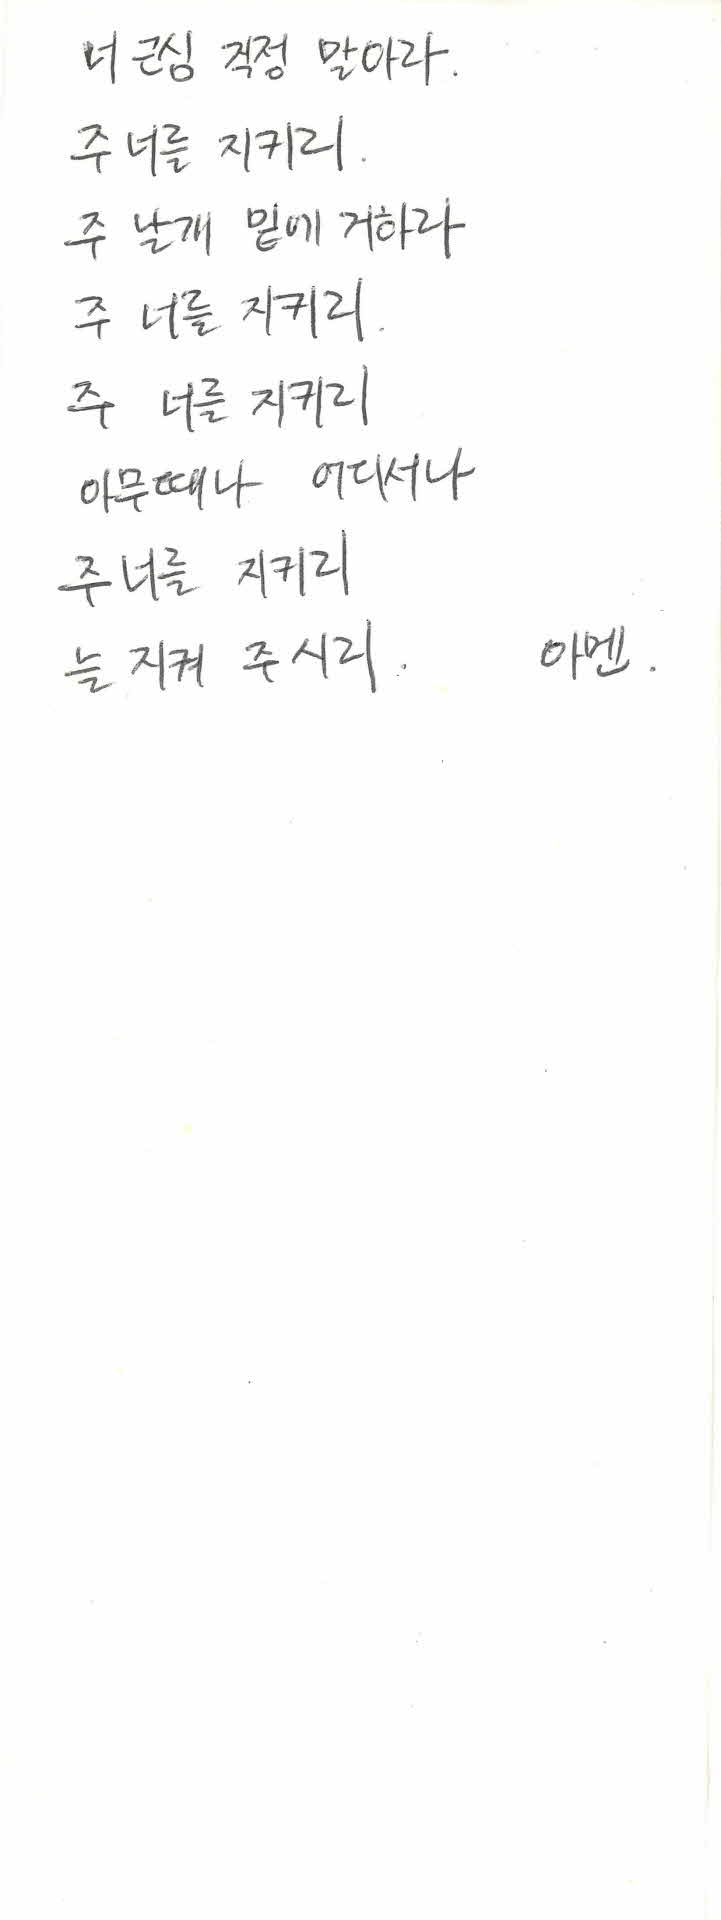 너 근심 걱정 말아라.
주 너를 지키리.
주 날개 밑에 거하라
주 너를 지키리.
주 너를 지키리
아무때나 어디서나
주 너를 지키리
늘 지켜 주시리. 아멘.